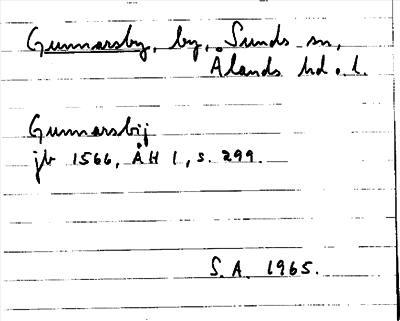 Gunnarsby, by, Sunds sn,
Ålands hd o. l.
Gunnarsbij
jb 1566, ÅH 1, s. 299.
S. A. 1965.